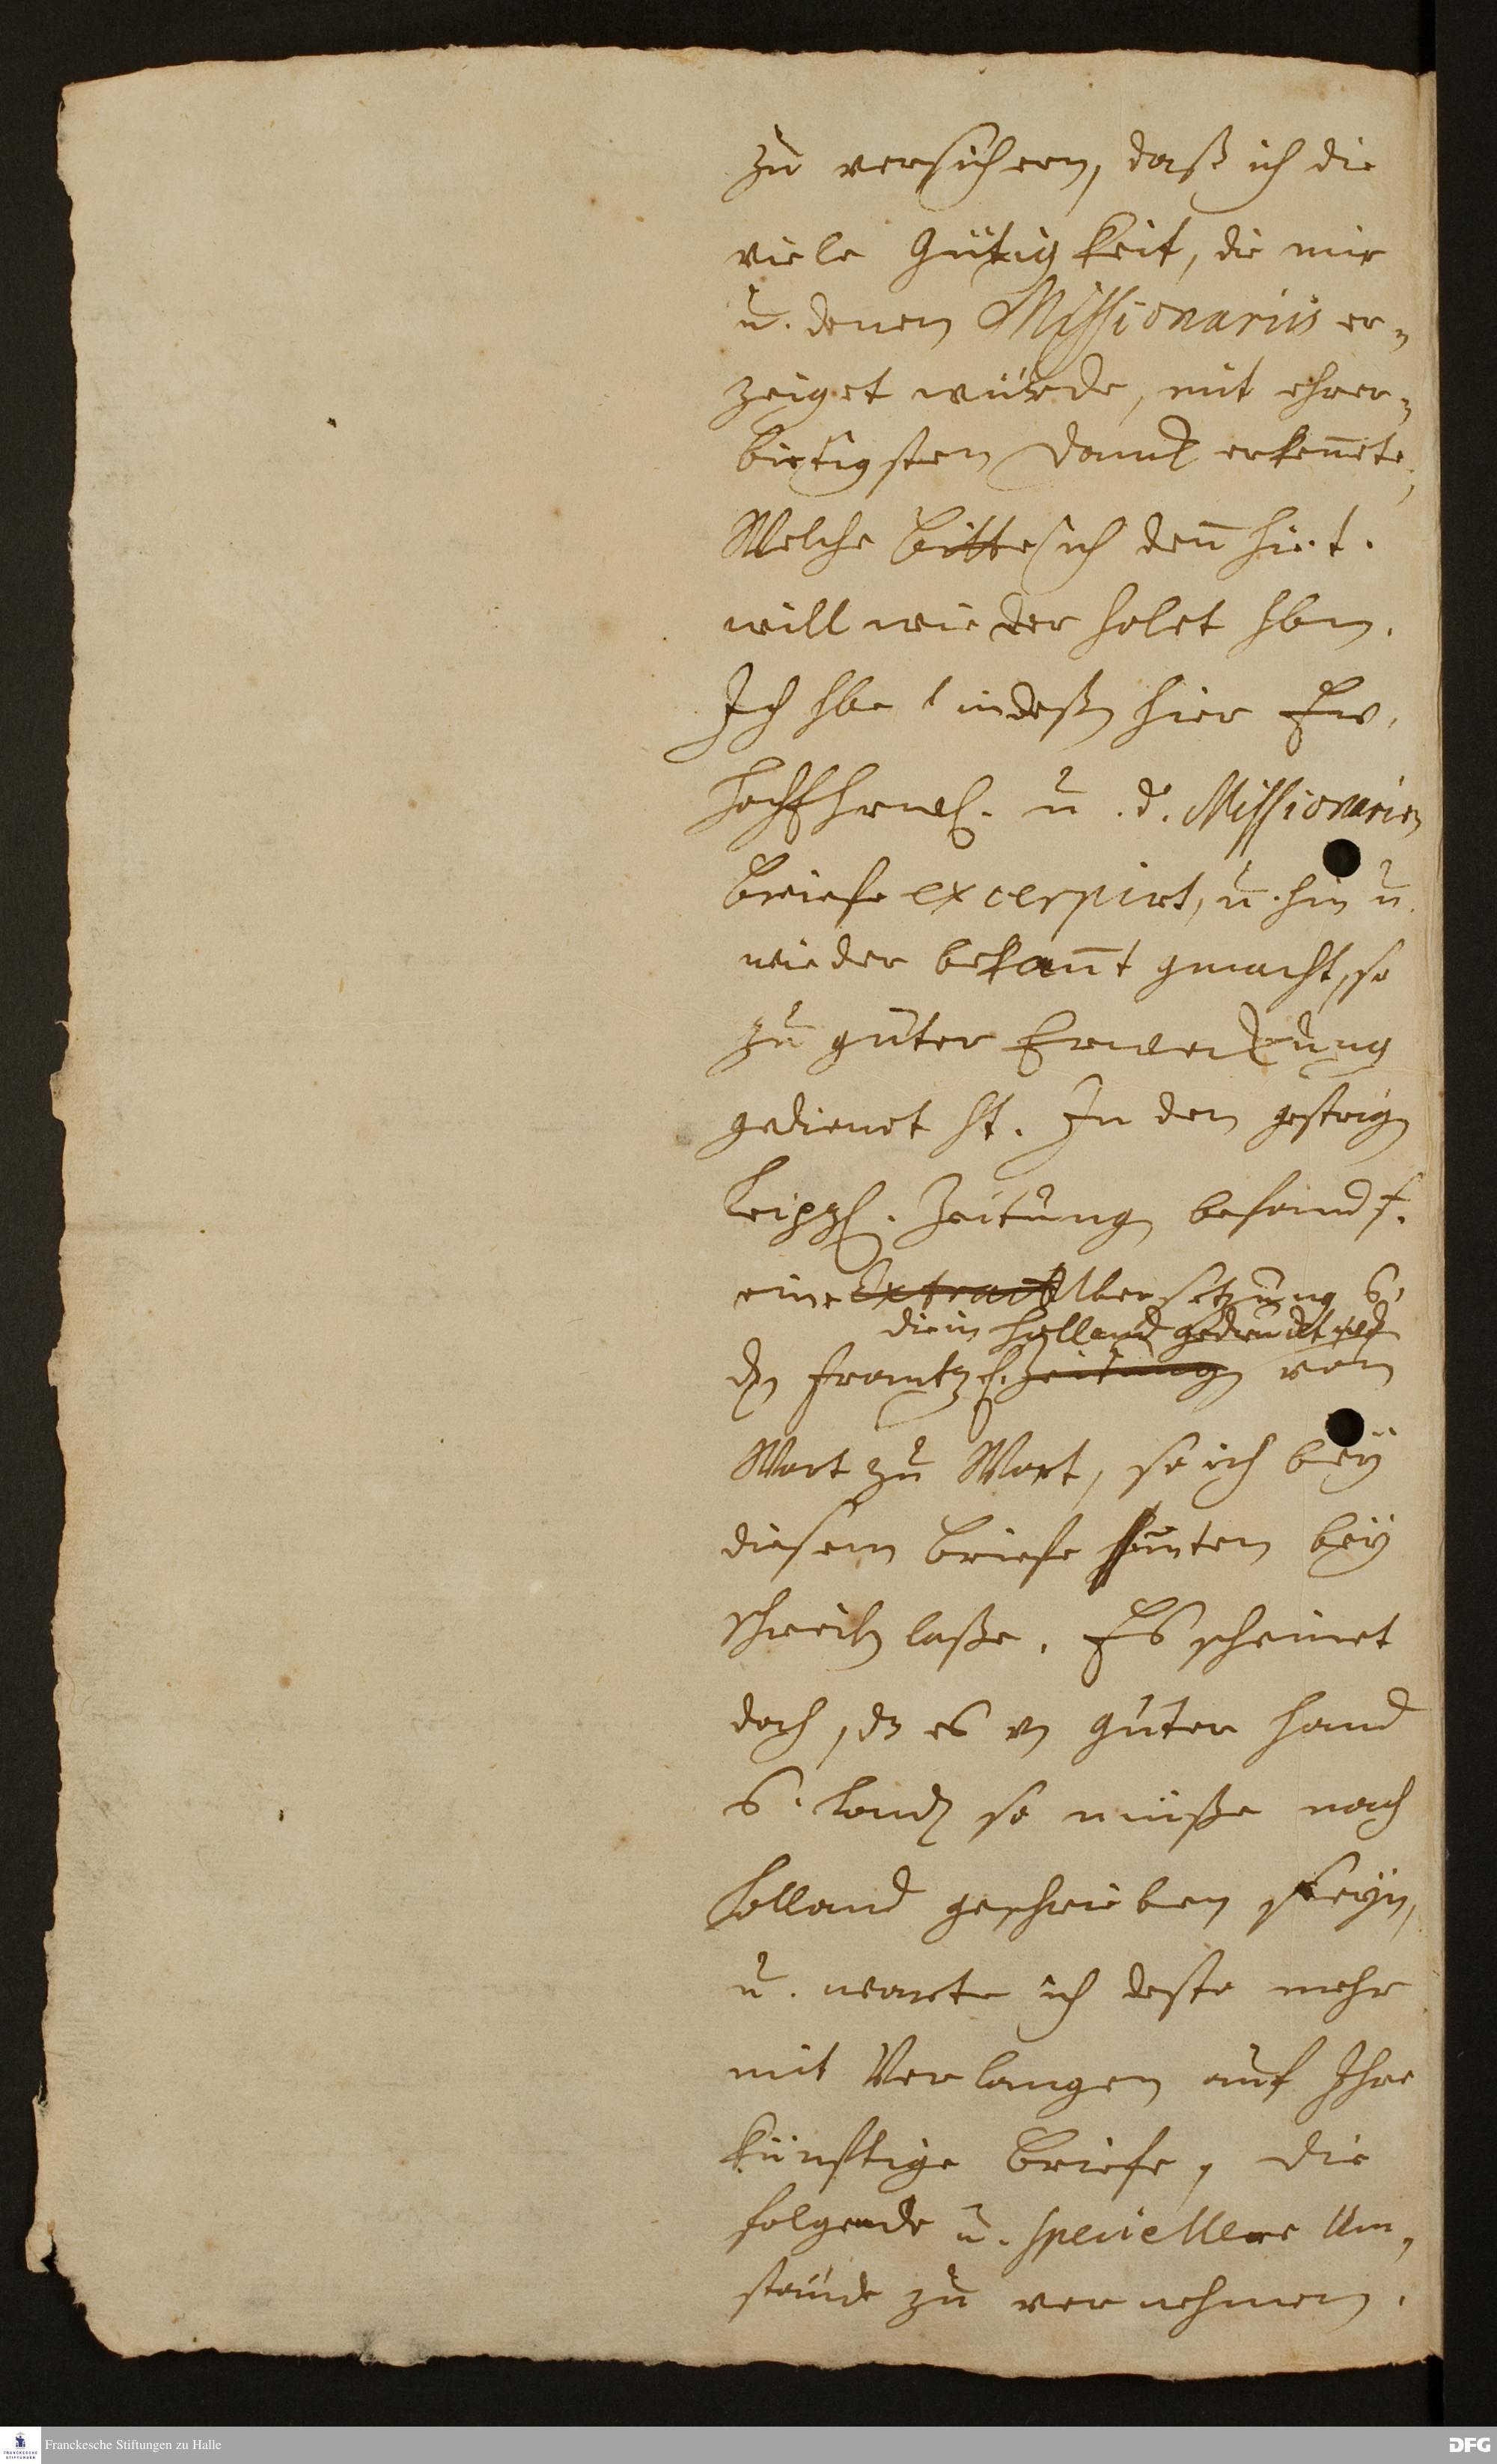 zu versichern, daß ich die
viele Gütigkeit, die mir
u. denen Missionariis er-
zeiget würde, mit ehrer-
bietigsten Danck erken̅ete,
Welche bitte ich den̅ hie.t.
will wiederholet hben.
Ich hbe indeßen hier Ew.
HochEhrw. u. d. Missionarien
Briefe excerpirt, u. hin u.
wieder bekan̅t gemacht, so
zu guter Erweckung
gedienet ht. In den gestrigen
Leipz. Zeitungen befand s.
eine Extract Ubersetzung
die in Holland gedruckt
den Frantz. Zeitungen von
Wort zu Wort, so ich bey
diesem Briefe hunten bey
schreiben laße. Es scheinet
doch, dz es von guter Hand
so müße nach
Holland geschrieben seyn,
u. warte ich desto mehr
mit Verlangen auf Ihre
künftige Briefe, die
folgende u. speciellere Um-
stände zu vernehmen.
Franckesche Stiftungen zu Halle
DFG